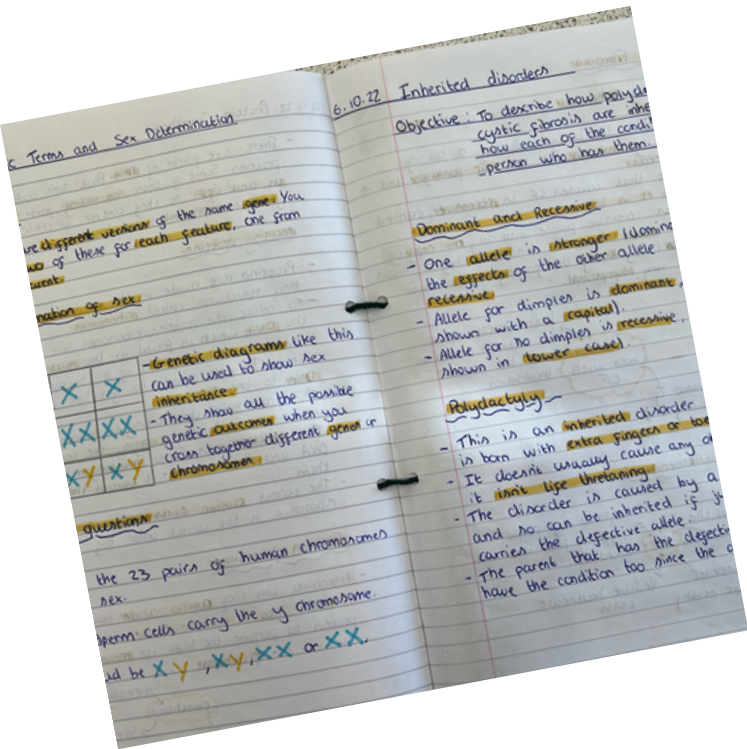 Terms and Sex Determination
different versions of the same gene. You
of these for each feature, one from
nation of sex
X X
- Genetic diagrams like this
can be used to show sex
inheritance.
XX XX
- They show all the possible
genetic outcomes when you
cross together different genes or
chromosomes
XY XY
questions
the 23 pairs of human chromosomes
sex.
sperm cells carry the y chromosome.
be XY, XY, XX or XX.
6.10.22 Inherited disorders
Objective: To describe how polyda
cystic fibrosis are inhe
how each of the condi
person who has them.
Dominant and Recessive
- One allele is stronger (domina
the effects of the other allele
recessive.
- Allele for dimples is dominant
shown with a capital).
- Allele for no dimples is recessive
shown in lower case).
Polydactyly
- This is an inherited disorder
is born with extra fingers or toe
- It doesn't usually cause any
it isn't life thretaning
- The disorder is caused by a
and so can be inherited if
carries the defective allele
- The parent that has the defecti
have the condition too since the